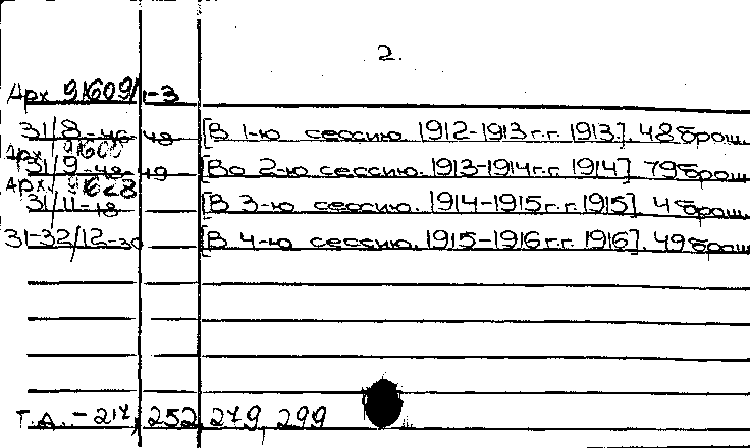 2.
Арх 91609/1-3
31/8-46-48 [В 1-ю сессию. 1912-1913 г.г. 1913]. 48 брош.
Арх. 91609
31/9-48-49 [Во 2-ю сессию. 1913-1914 г.г. 1914] 79 брош.
Арх. 91628
31/11-18 [В 3-ю сессию. 1914-1915 г.г. 1915] 4 брош.
31-32/12-30 [В 4-ю сессию. 1915-1916 г.г. 1916]. 49 брош.
Т.Д. - 217, 252, 279, 299